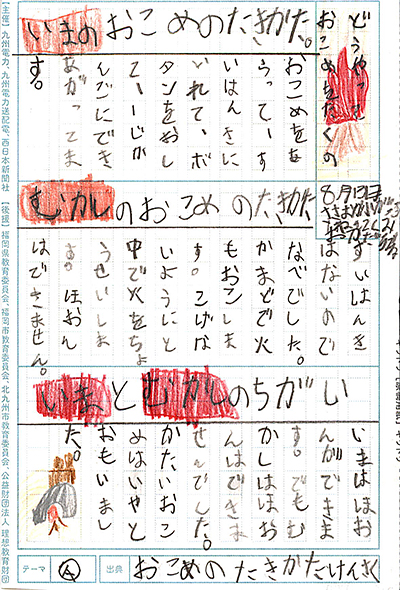 どうやって
おこめをたくの
いまのおこめのたきかた。
おこめをあ
らって、す
いはんきに
いれて、ボ
タンをおし
て一じか
んでにでき
あがってま
す。
むかしのおこめのたきかた
8月
すいはんき
はないので
なべでした。
かまどで火
もおこしま
す。こげな
いようにと
中で火をちょ
うせいしま
す。ほおん
はできません。
いまとむかしのちがい
いまはほお
んができま
す。でもむ
かしはほお
んはできま
せんでした。
かたいおこ
めはいやと
おもいまし
た。
テーマ A 出典 おこめのたきかたけんさく
【主催】九州電力、九州電力送配電、西日本新聞社 【後援】福岡県教育委員会、福岡市教育委員会、北九州市教育委員会、公益財団法人 理想教育財団